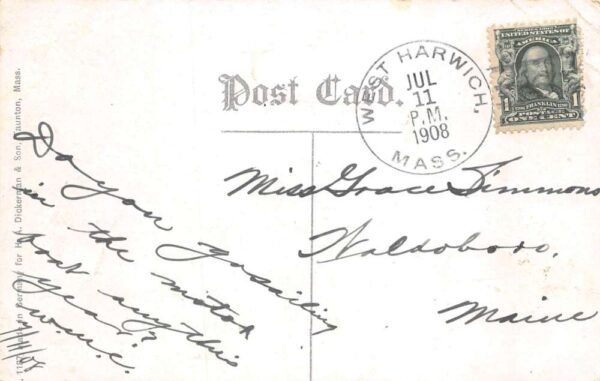 Post Card.
WEST HARWICH,
JUL
11
P.M.
1908
MASS.
SERIES 1902
UNITED STATES OF
AMERICA
1 FRANKLIN 1
POSTAGE
ONE CENT
Miss Grace Simmons
Waldoboro,
Maine
Do you go sailing
in the motor
boat any this
year?
W.W.C.
7/11/08
Made in Germany for H. A. Dickerman & Son, Taunton, Mass.